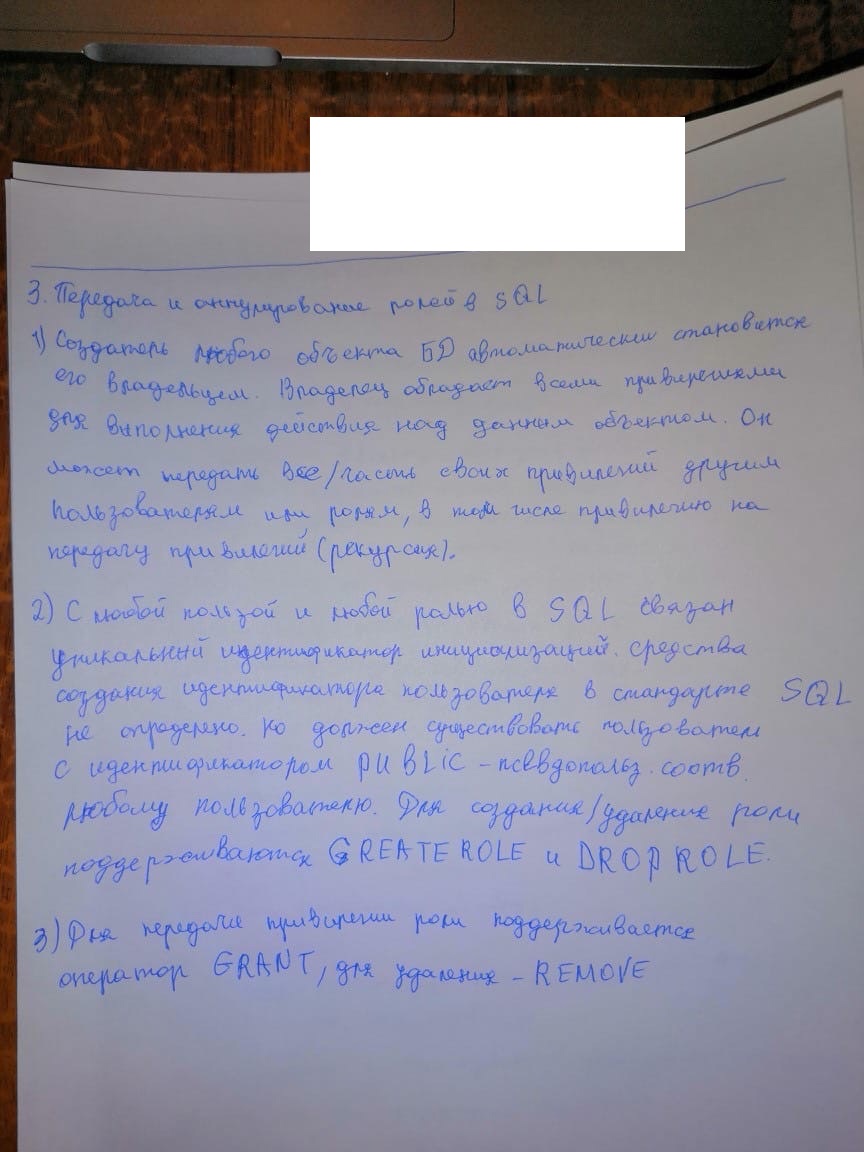 3. Передача и аннулирование ролей в SQL
1) Создатель любого объекта БД автоматически становится
его владельцем. Владелец обладает всеми привилегиями
для выполнения действия над данным объектом. Он
может передать все/часть своих привилегий другим
пользователям или ролям, в том числе привилегию на
передачу привилегий (рекурсия).
2) С любой пользой и любой ролью в SQL связан
уникальный идентификатор инициализаций. средства
создания идентификатора пользователя в стандарте SQL
не определено. Но должен существовать пользователь
с идентификатором PUBLIC - псевдопольз. соотв.
любому пользователю. Для создания/удаления роли
поддерживаются CREATE ROLE и DROP ROLE.
3) Для передачи привилегии роли поддерживается
оператор GRANT, для удаления - REMOVE